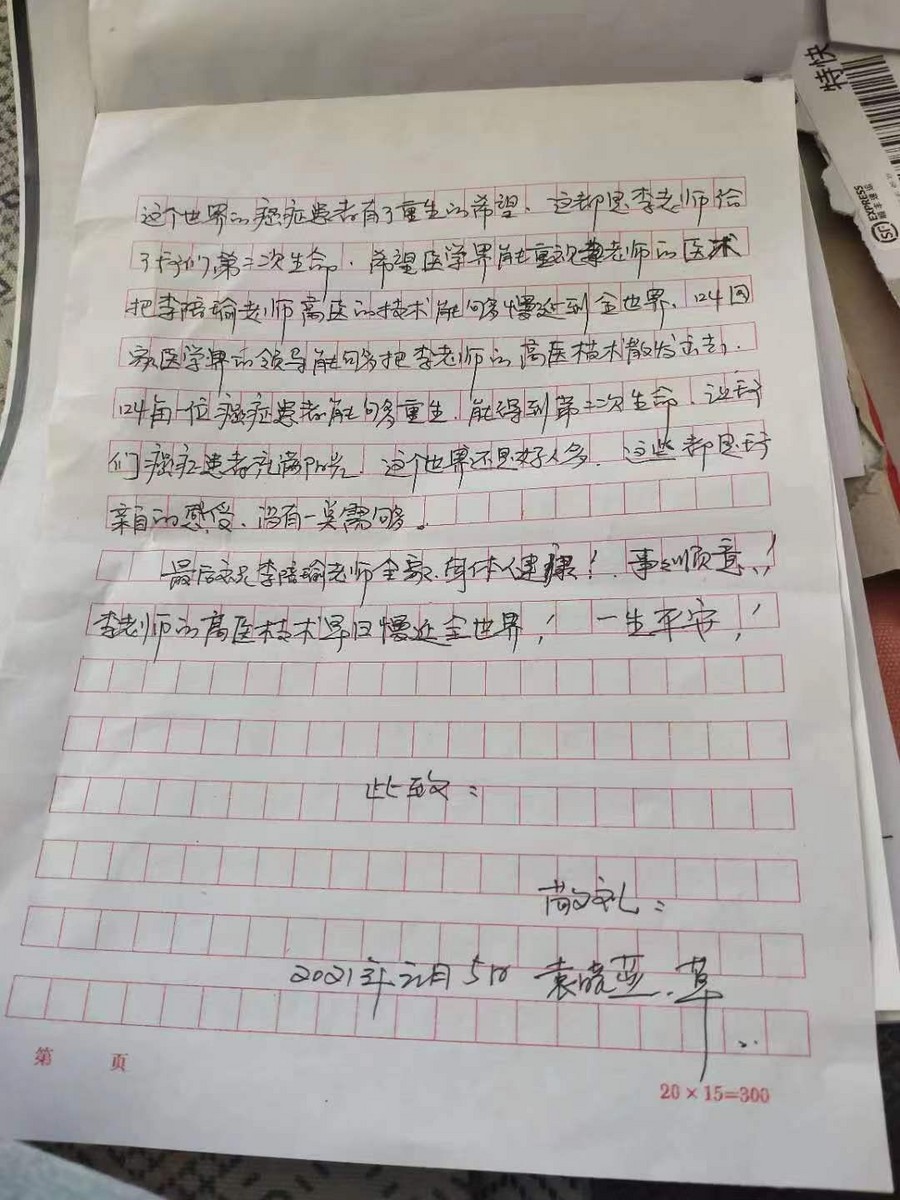 特快
SF EXPRESS
这个世界的癌症患者有了重生的希望、这都是李老师给
了我们第二次生命、希望医学界能重视李老师的医术
把李陪瑜老师高医的技术能够慢延到全世界、叫国
家医学界的领导能够把李老师的高医技术散发出去、
叫每一位癌症患者能够重生、能得到第二次生命、让我
们癌症患者充满阳光、这个世界还是好人多、这些都是我
亲自的感受、没有一点需够。
最后祝李陪瑜老师全家、身体健康！、事事顺意！
李老师的高医技术早日慢延全世界！ 一生平安！
此致：
敬礼：
2021年元月5日 袁晓蓝、草
第 页
20×15=300